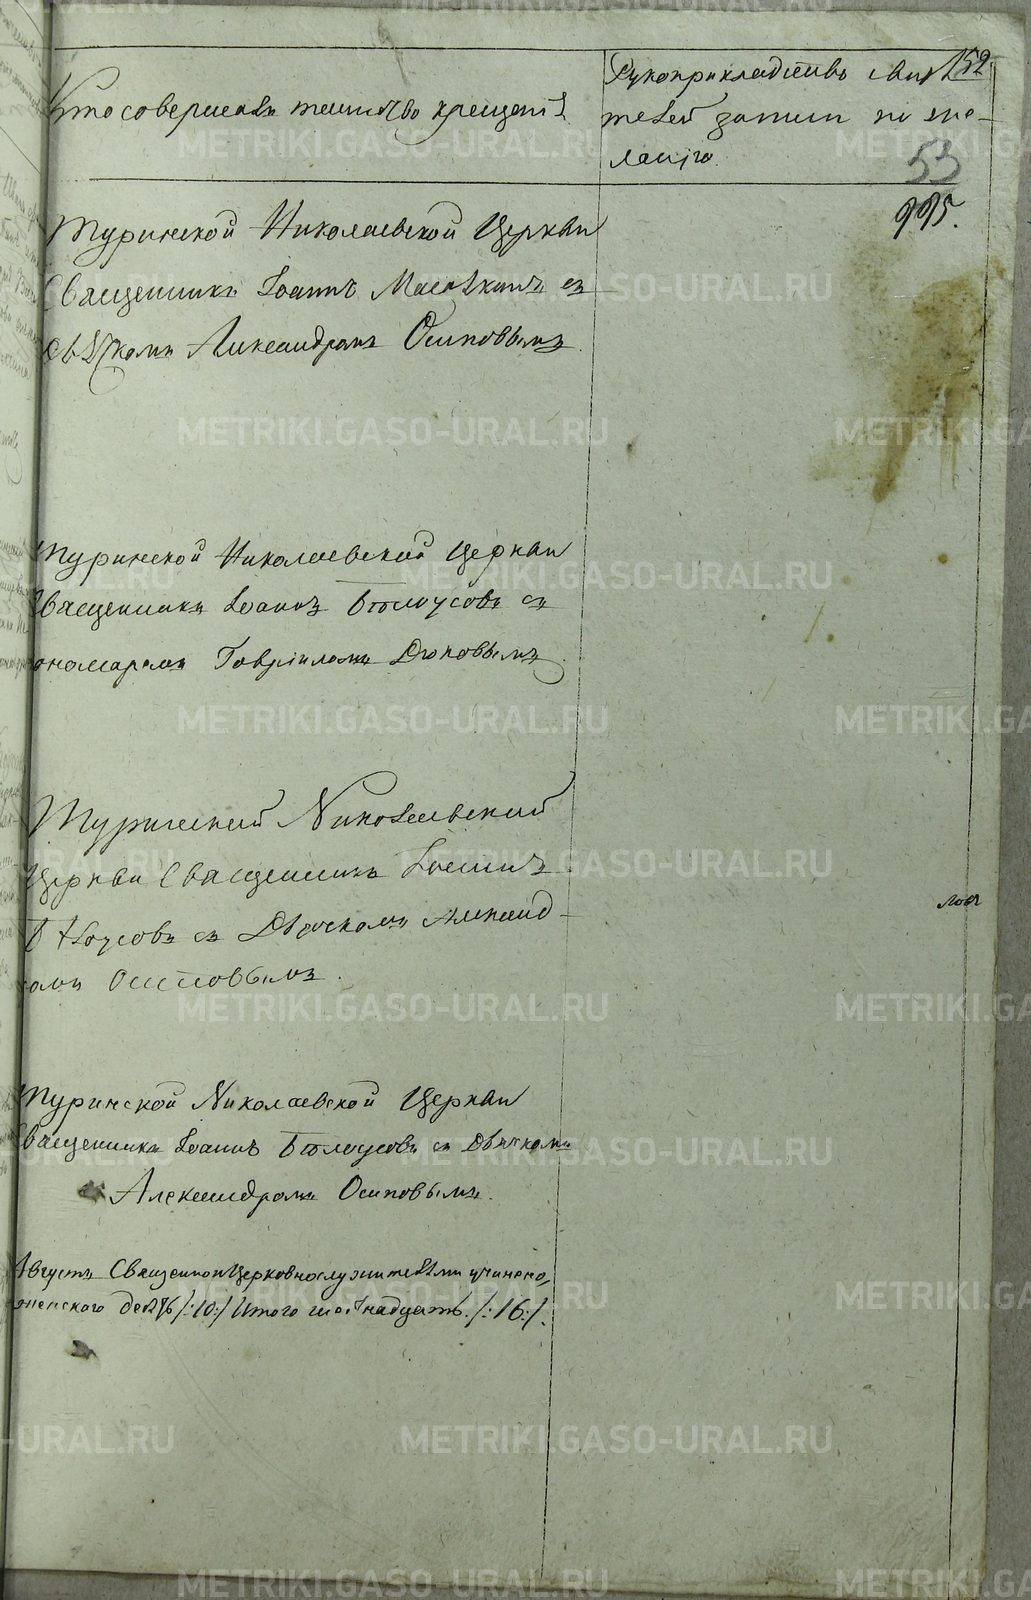 Кто совершалъ таинство крещенія
Рукоприкладство свидѣ
телей записи по же-
ланію.
152
53
995.
Туринской Николаевской Церкви
Священникъ Іоаннъ съ
Александромъ Осиповымъ
Туринской Николаевской Церкви
Священникъ Іоаннъ Бѣлоусовъ съ
пономаремъ Гавріиломъ Дюковымъ.
Туринской Николаевской
Церкви Священникъ Іоаннъ
Бѣлоусовъ съ Дьячкомъ Александ-
ромъ Осиповымъ.
Туринской Николаевской Церкви
Священникъ Іоаннъ Бѣлоусовъ съ Дьячкомъ
Александромъ Осиповымъ.
Августъ Священноицерковнослужителями учинено,
женскаго десять /:10:/ Итого шестнадцать. /:16:/.
METRIKI.GASO-URAL.RU